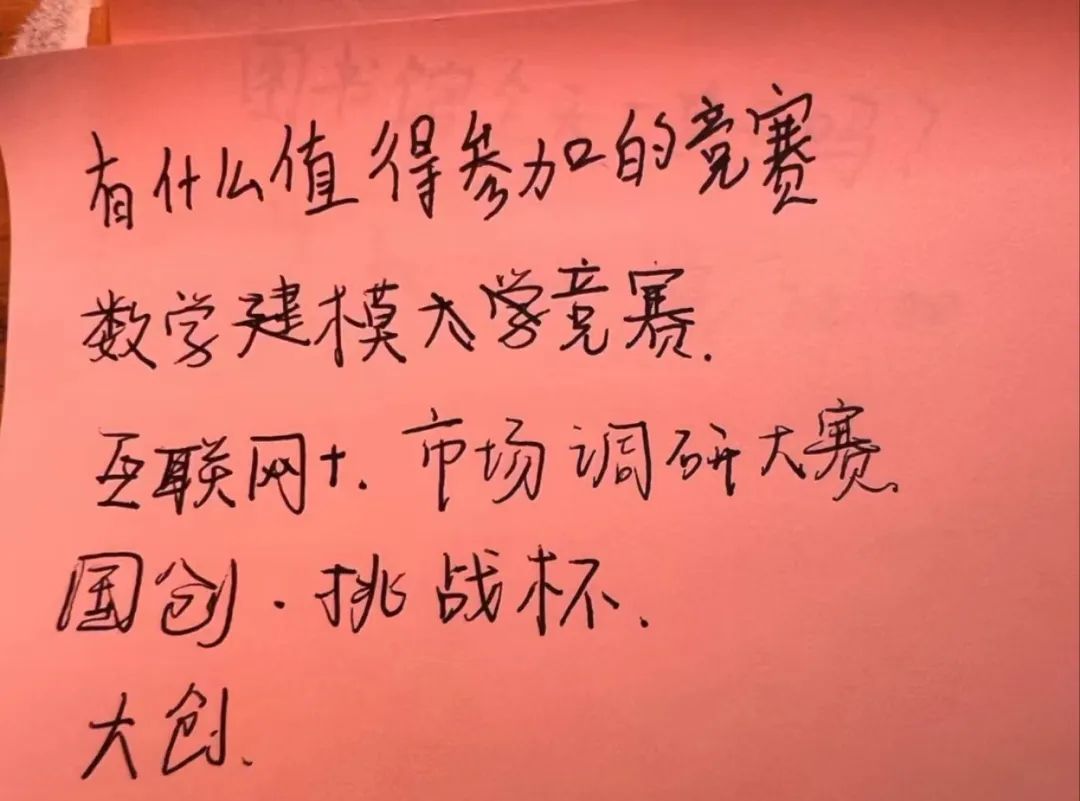 有什么值得参加的竞赛
数学建模大学竞赛.
互联网+. 市场调研大赛.
国创. 挑战杯.
大创.